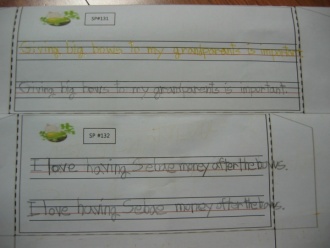 SP#131
Giving big bows to my grandparents is important
Giving big bows to my grandparents is important
SP #132
I love having Sebae money after the bows.
I love having Sebae money after the bows.